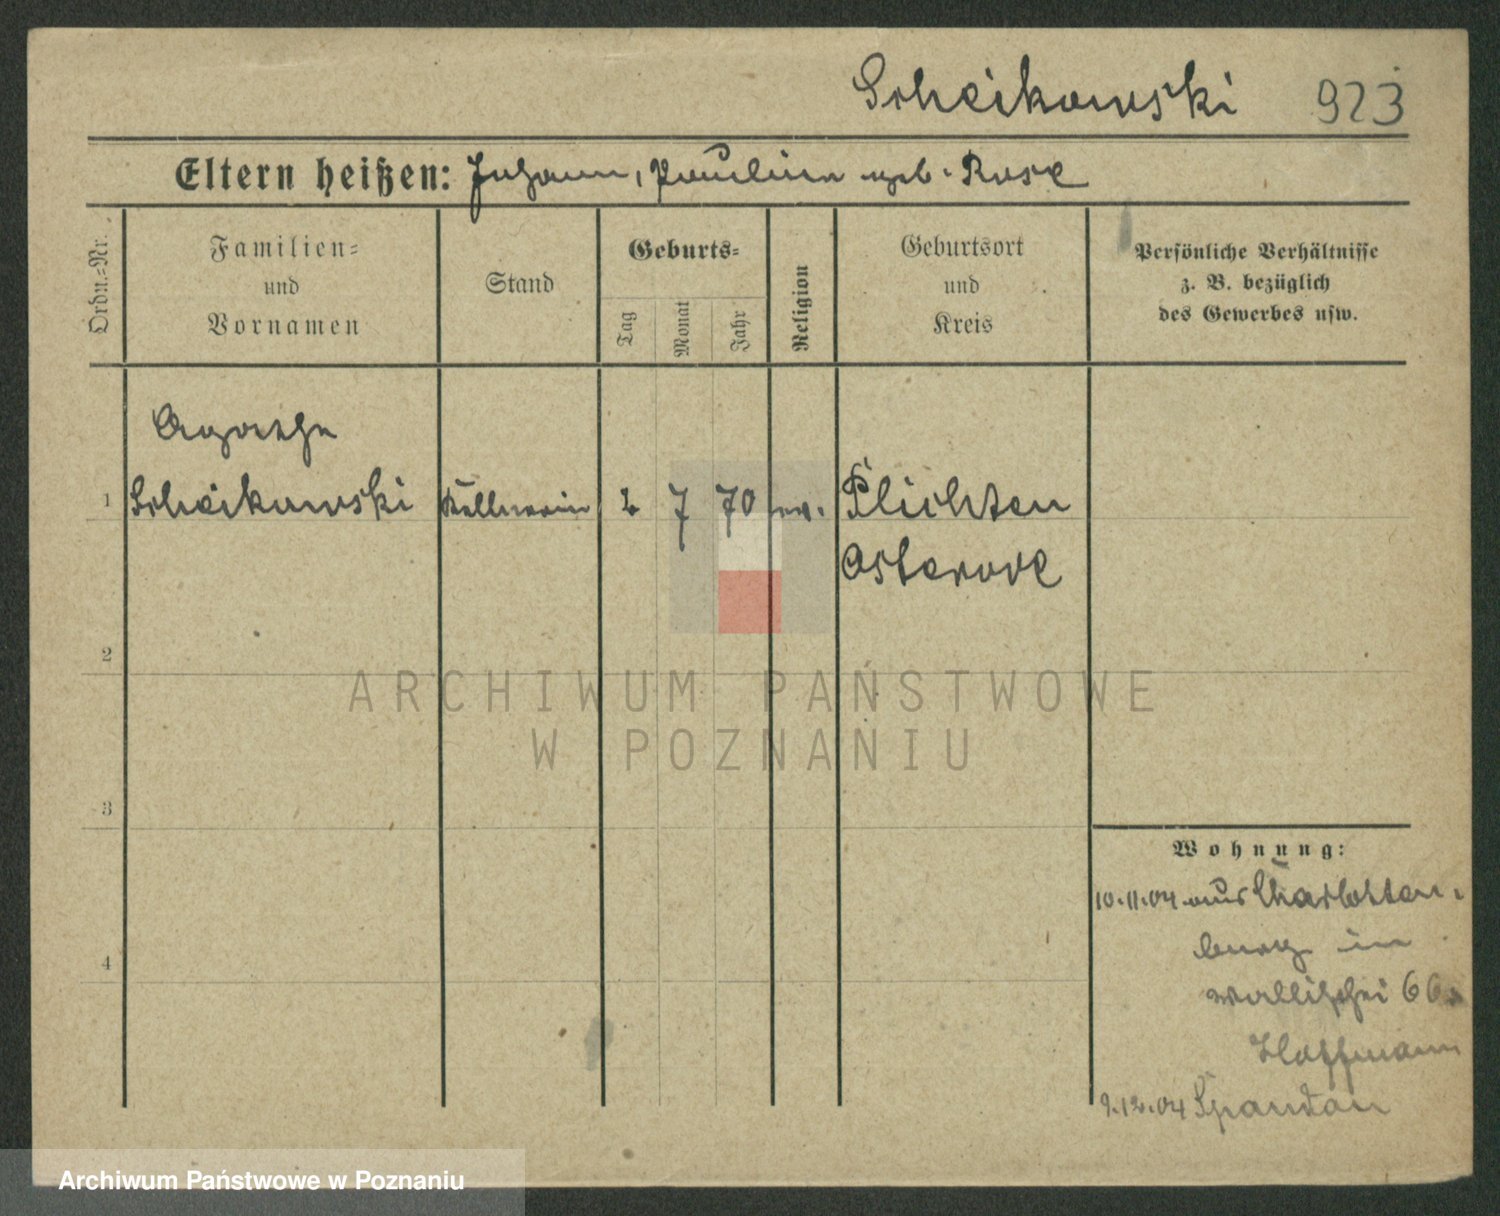 Scheikowski 923
Eltern heißen: Johann, Pauline geb. Rose
Ordn.=Nr.
Familien=
und
Vornamen
Stand
Geburts=
Tag
Monat
Jahr
Religion
Geburtsort
und
Kreis
Persönliche Verhältnisse
z. B. bezüglich
des Gewerbes usw.
Agathe
1 Scheikowski Kellnerin 2 7 70 ev. Plichten
Osterode
2
ARCHIWUM PAŃSTWOWE
W POZNANIU
3
Wohnung:
10.11.04 aus Charlotten-
burg in
4
Wallischei 66
Hoffmann
9.12.04 Spandau
Archiwum Państwowe w Poznaniu